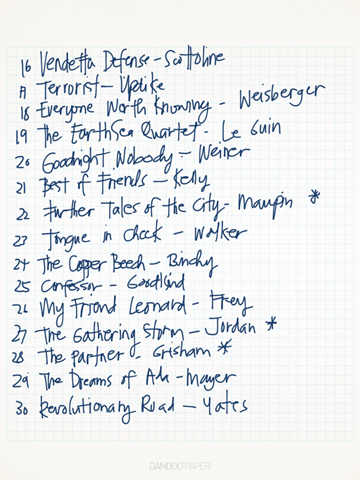 16 Vendetta Defense - Scottoline
17 Terrorist - Updike
18 Everyone Worth Knowing - Weisberger
19 The EarthSea Quartet - Le Guin
20 Goodnight Nobody - Weiner
21 Best of Friends - Kelly
22 Further Tales of the City - Maupin *
23 Tongue in Cheek - Walker
24 The Copper Beech - Binchy
25 Confessor - Goodkind
26 My Friend Leonard - Frey
27 The Gathering Storm - Jordan *
28 The Partner - Grisham *
29 The Dreams of Ada - Mayer
30 Revolutionary Road - Yates
BAMBOO PAPER